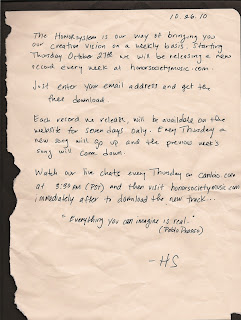 10.26.10
The Honor System is our way of bringing you
our creative vision on a weekly basis. Starting
Thursday October 27th we will be releasing a new
record every week at honorsociety music.com
Just enter your email address and get the
free download.
Each record we release, will be available on the
website for seven days only. Every Thursday a
new song will go up and the previous week's
song will come down.
Watch our live chats every Thursday on cambio.com
at 3:30 pm (PST) and then visit honorsocietymusic.com
immediately after to download the new track...
"Everything you can imagine is real."
(Pablo Picasso)
- HS